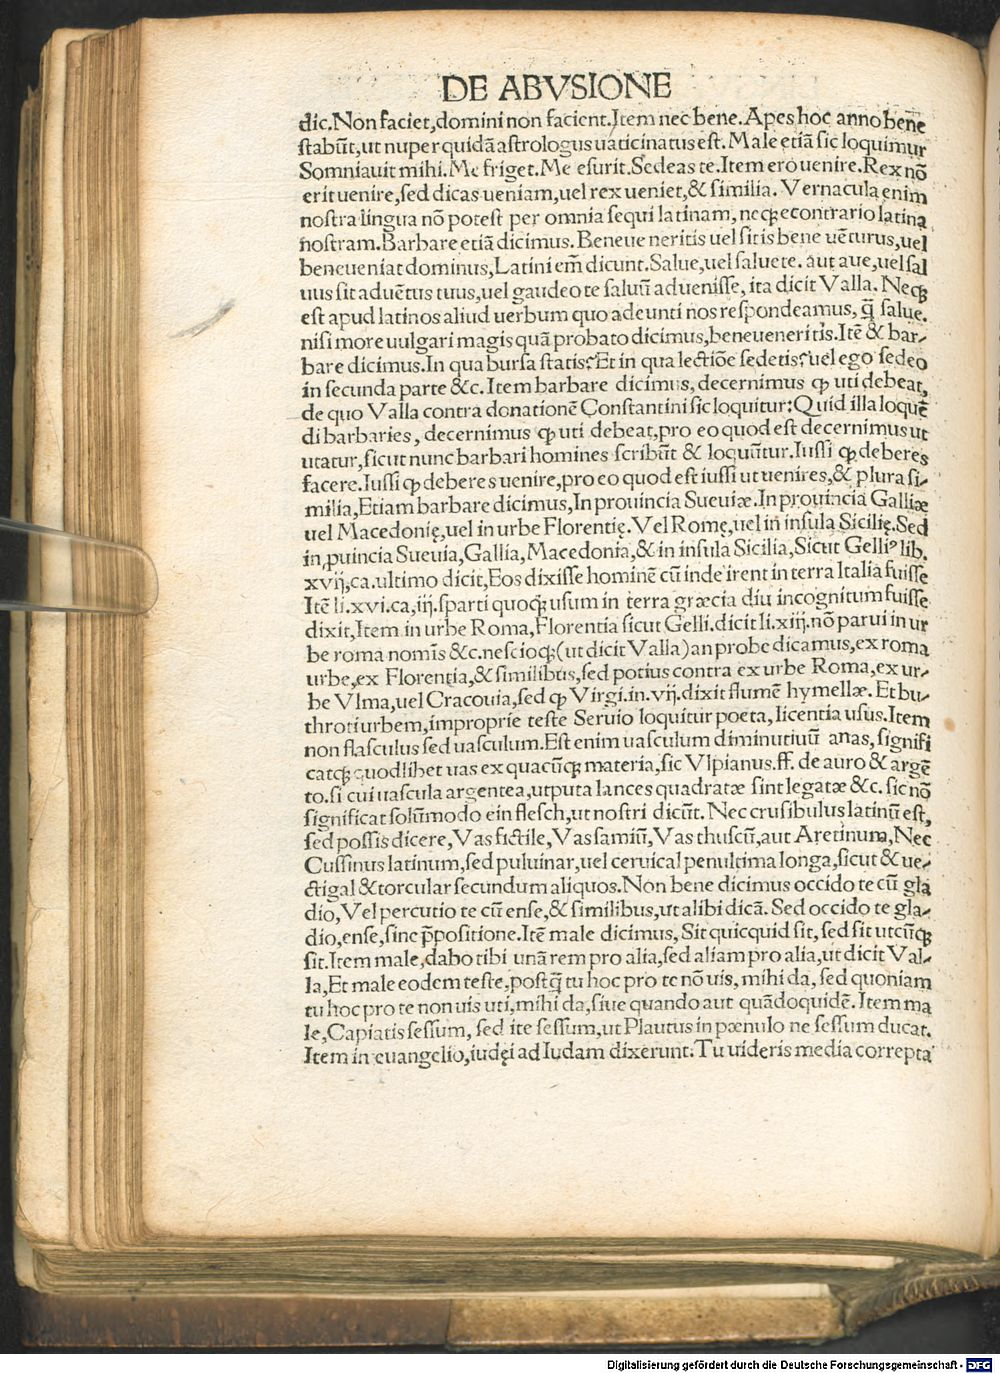 DE ABVSIONE
dic.Non faciet,domini non facient.Item nec bene.Apes hoc anno bene
stabūt,ut nuper quidā astrologus uaticinatus est.Male etiā sic loquimur
Somniauit mihi.Me friget.Me esurit.Sedeas te.Item ero uenire.Rex nō
erit uenire,sed dicas ueniam,uel rex ueniet,& similia. Vernacula enim
nostra lingua nō potest per omnia sequi latinam, necꝫ econtrario latina
nostram.Barbare etiā dicimus.Beneue neritis uel sitis bene uēturus,uel
beneueniat dominus,Latini em̄ dicunt.Salue,uel saluete. aut aue,uel sal
uus sit aduētus tuus,uel gaudeo te saluū aduenisse, ita dicit Valla. Necꝫ
est apud latinos aliud uerbum quo adeunti nos respondeamus, q̄ salue.
nisi more uulgari magis quā probato dicimus,beneueneritis.Itē & bar-
bare dicimus.In qua bursa statis?Et in qua lectiōe sedetis?uel ego sedeo
in secunda parte &c.Item barbare dicimus, decernimus ꝙ uti debeat,
de quo Valla contra donationē Constantini sic loquitur:Quid illa loquē
di barbaries, decernimus ꝙ uti debeat,pro eo quod est decernimus ut
utatur,sicut nunc barbari homines scribūt & loquūtur.Iussi ꝙ deberes
facere.Iussi ꝙ deberes uenire,pro eo quod est iussi ut uenires,& plura si-
milia,Etiam barbare dicimus,In prouincia Sueuiæ.In prouincia Galliæ
uel Macedonię,uel in urbe Florentię.Vel Romę,uel in insula Sicilię.Sed
in ꝓuincia Sueuia,Gallia,Macedonia,& in insula Sicilia,Sicut Gelliꝰ lib.
xvij,ca.ultimo dicit,Eos dixisse hominē cū inde irent in terra Italia fuisse
Itē li.xvi.ca,iij.sparti quoqꝫ usum in terra græcia diu incognitum fuisse
dixit,Item in urbe Roma,Florentia sicut Gelli.dicit li.xiij.nō parui in ur
be roma nomīs &c.nescioqꝫ(ut dicit Valla)an probe dicamus,ex roma
urbe,ex Florentia,& similibus,sed potius contra ex urbe Roma,ex ur-
be Vlma,uel Cracouia,sed ꝙ Virgi.in.vij.dixit flumē hymellæ. Et bu-
throti urbem,improprie teste Seruio loquitur poeta, licentia usus.Item
non flasculus sed uasculum.Est enim uasculum diminutiuū anas, signifi
catqꝫ quodlibet uas ex quacūqꝫ materia,sic Vlpianus.ff. de auro & argē
to.si cui uascula argentea,utputa lances quadratæ sint legatæ &c. sic nō
significat solūmodo ein flesch,ut nostri dicūt. Nec crusibulus latinū est,
sed possis dicere,Vas fictile,Vas samiū,Vas thuscū,aut Aretinum,Nec
Cussinus latinum,sed puluinar,uel ceruical penultima longa,sicut & ue-
ctigal & torcular secundum aliquos.Non bene dicimus occido te cū gla
dio,Vel percutio te cū ense,& similibus,ut alibi dicā. Sed occido te gla-
dio,ense,sine p̄positione.Itē male dicimus, Sit quicquid sit, sed sit utcūqꝫ
sit.Item male,dabo tibi unā rem pro alia,sed aliam pro alia,ut dicit Val-
la,Et male eodem teste,postq̄ tu hoc pro te nō uis, mihi da, sed quoniam
tu hoc pro te non uis uti,mihi da,siue quando aut quādoquidē. Item ma
le,Capiatis sessum, sed ite sessum,ut Plautus in pœnulo ne sessum ducat.
Item in euangelio,iudęi ad Iudam dixerunt.Tu uideris media correpta
Digitalisierung gefördert durch die Deutsche Forschungsgemeinschaft - DFG